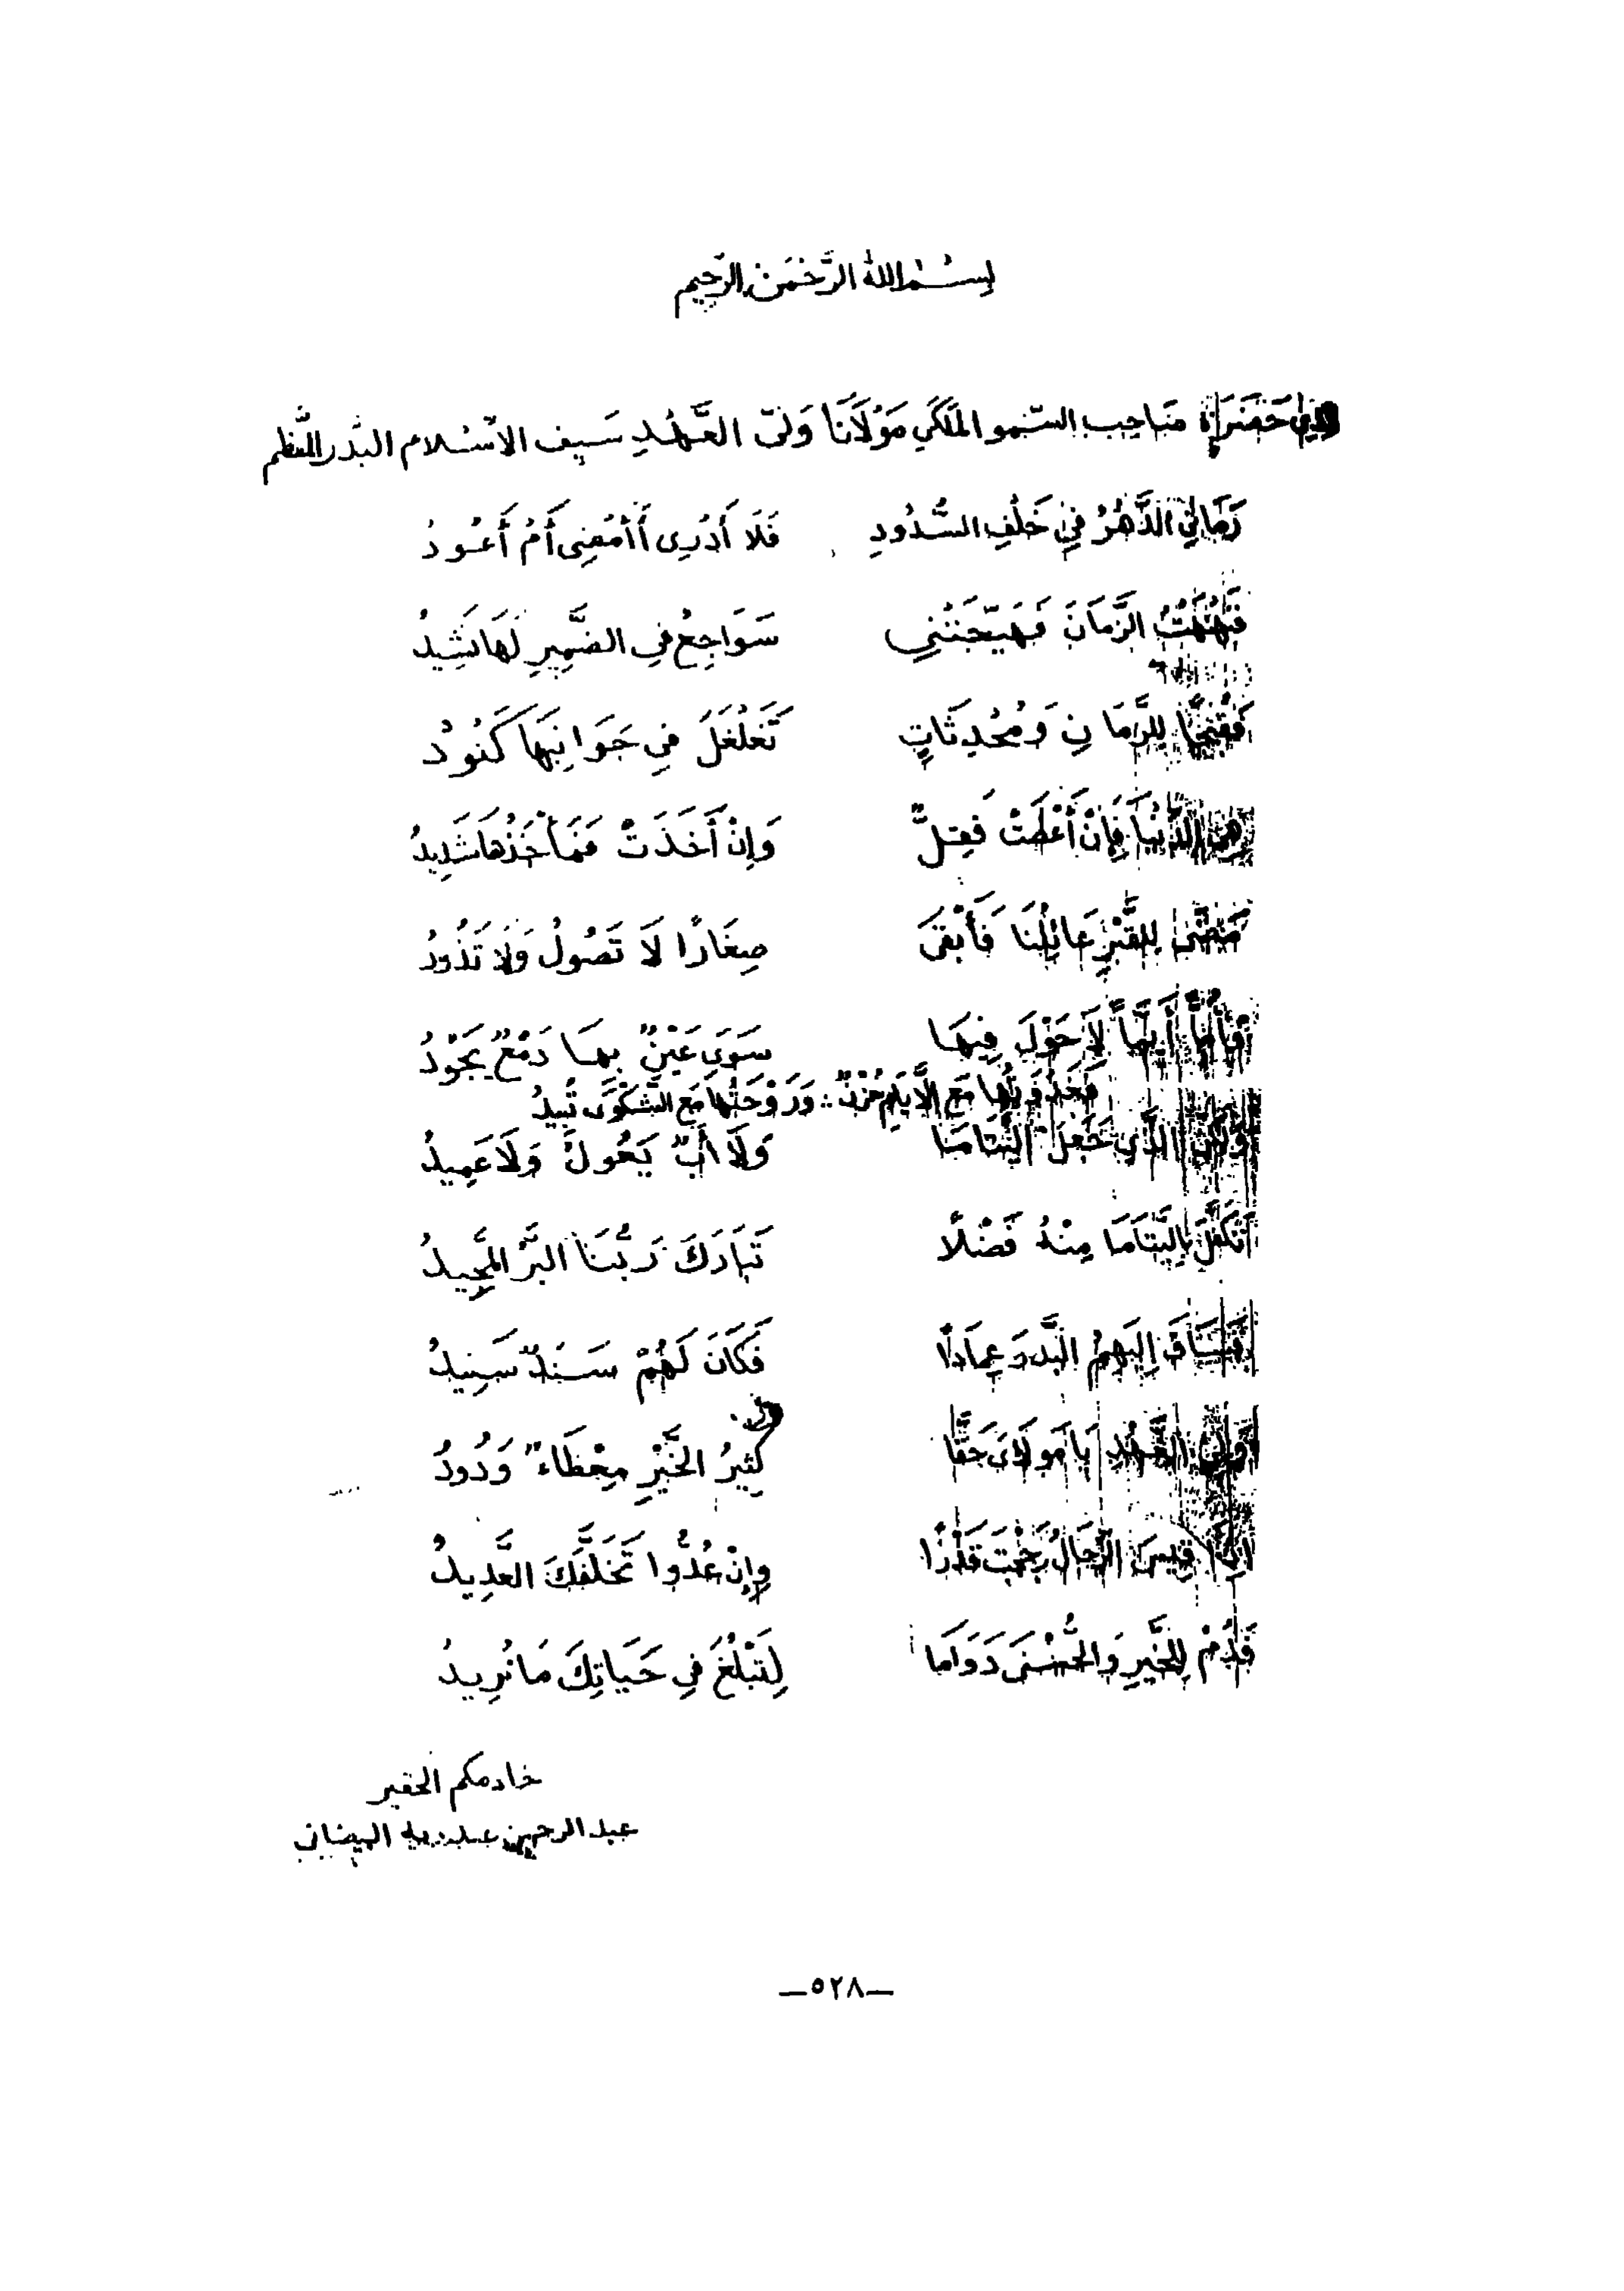 بِسْمِ اللهِ الرَّحْمٰنِ الرَّحِيمِ
إلى حَضَرَة صَاحِب السّمو المَلَكَي مَوْلَانَا وَلىّ العَّهْدِ سَيف الاسْلام البَدر المعظم
رَمَانِي الدَّهْرُ فِي خَلْفِ السُّدُودِ فَلَا أَدْرِى أَأَمْضِى أَمْ أَعُودُ
الزَّمَانَ فَهَيَّجَتْنِي سَوَاجِعُ فِي الضَّمِيرِ لَهَا نَشِيدُ
لِلزَّمَانِ وَمُحْدِثَاتٍ تَغَلْغَلَ فِي جَوَانِبَهَا كَنُودُ
هِيَ الدُّنْيَا فَإِنْ أَعْطَتْ فَقِلٌّ وَإِنْ أَخَذَتْ فَمَأْخَذُهَا شَدِيدُ
مَضَى لِلقَبْرِ عَائِلُنَا فَأَبْقَى صِغَارًا لَا تَصُولُ وَلَا تَذُودُ
لَا حَوْلَ فِيهَا سِوَى عَيْنٍ بِهَا دَمْعٌ يَجُودُ
مَعَ الأَيَّامِ حُزْنٌ ∴ وَرَوْحَتُهَا مَعَ الشَّكْوَى تُبِيدُ
الَّذِي جَعَلَ اليَتَامَا وَلَا أَبٌ يَعُولُ وَلَا عَمِيدُ
تَكَفَّلَ بِاليَتَامَا مِنْهُ فَضْلًا تَبَارَكَ رَبُّنَا البَرُّ المَجِيدُ
فَسَاقَ إِلَيهِمُ البَدرَ عِمَادًا فَكَانَ لَهُمْ سَنَدٌ سَنِيدُ
وَلِيَّ العَّهْدِ يَا مَولَايَ حَقًّا كَثِيرُ الخَيْرِ مِعْطَاءٌ وَدُودُ
قِيسَ الرِّجَالُ رَجَحْتَ قَدْرًا وإِنْ عُدُّوا تَخَلَّفَكَ العَدِيدُ
فَدُمْ لِلخَيرِ وَالحُسْنَى دَوَامَا لِتَبْلُغَ فِي حَيَاتِكَ مَا تُرِيدُ
خادمكم الحقير
عبد الرحمن
—٥٢٨—